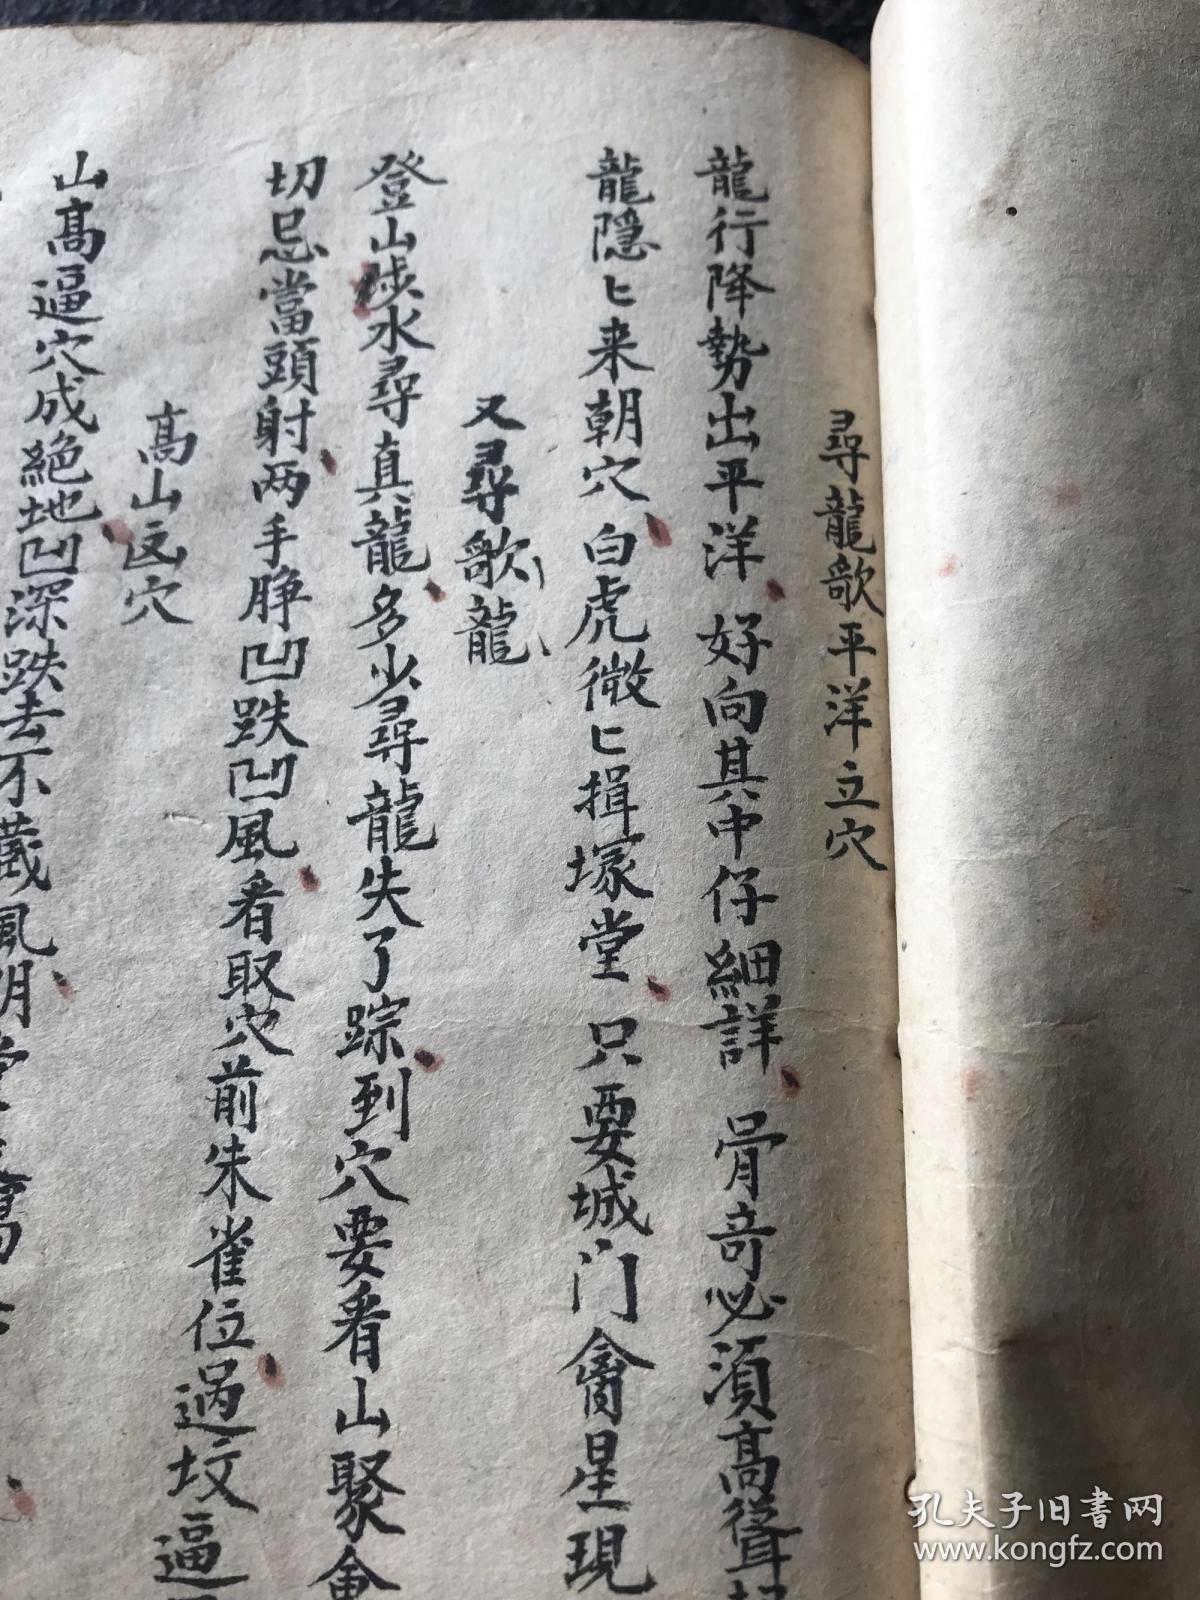 尋龍歌平洋立穴
龍行降勢出平洋、好向其中仔細詳、骨奇必須高聳
龍隱匕来朝穴、白虎微匕揖塚堂、只要城门禽星現
又尋歌龍
登山涉水尋真龍、多少尋龍失了踪、到穴要看山聚會
切忌當頭射、两手睁凹跌凹風、看取穴前朱雀位、過坟逼
高山凶穴
山高逼穴成絕地、凹深跌去不藏風、明堂
孔夫子旧书网
www.kongfz.com